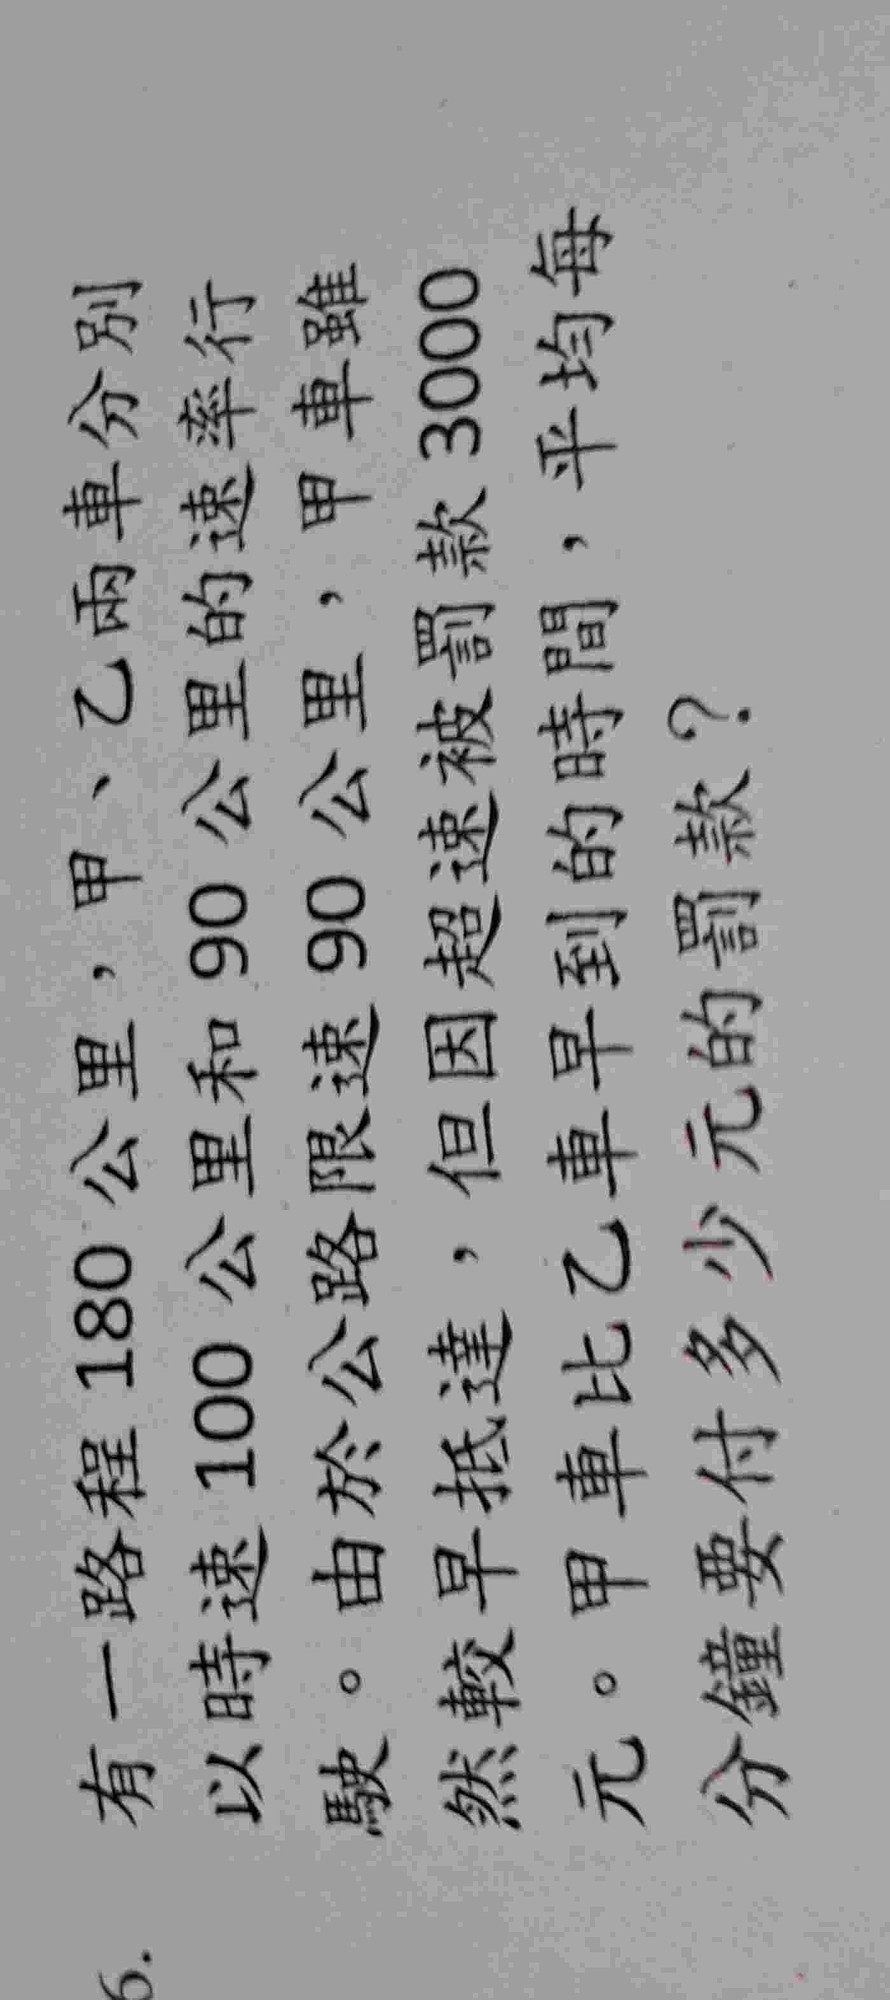 6. 有一路程 180 公里，甲、乙兩車分別
以時速 100 公里和 90 公里的速率行
駛。由於公路限速 90 公里，甲車雖
然較早抵達，但因超速被罰款 3000
元。甲車比乙車早到的時間，平均每
分鐘要付多少元的罰款？